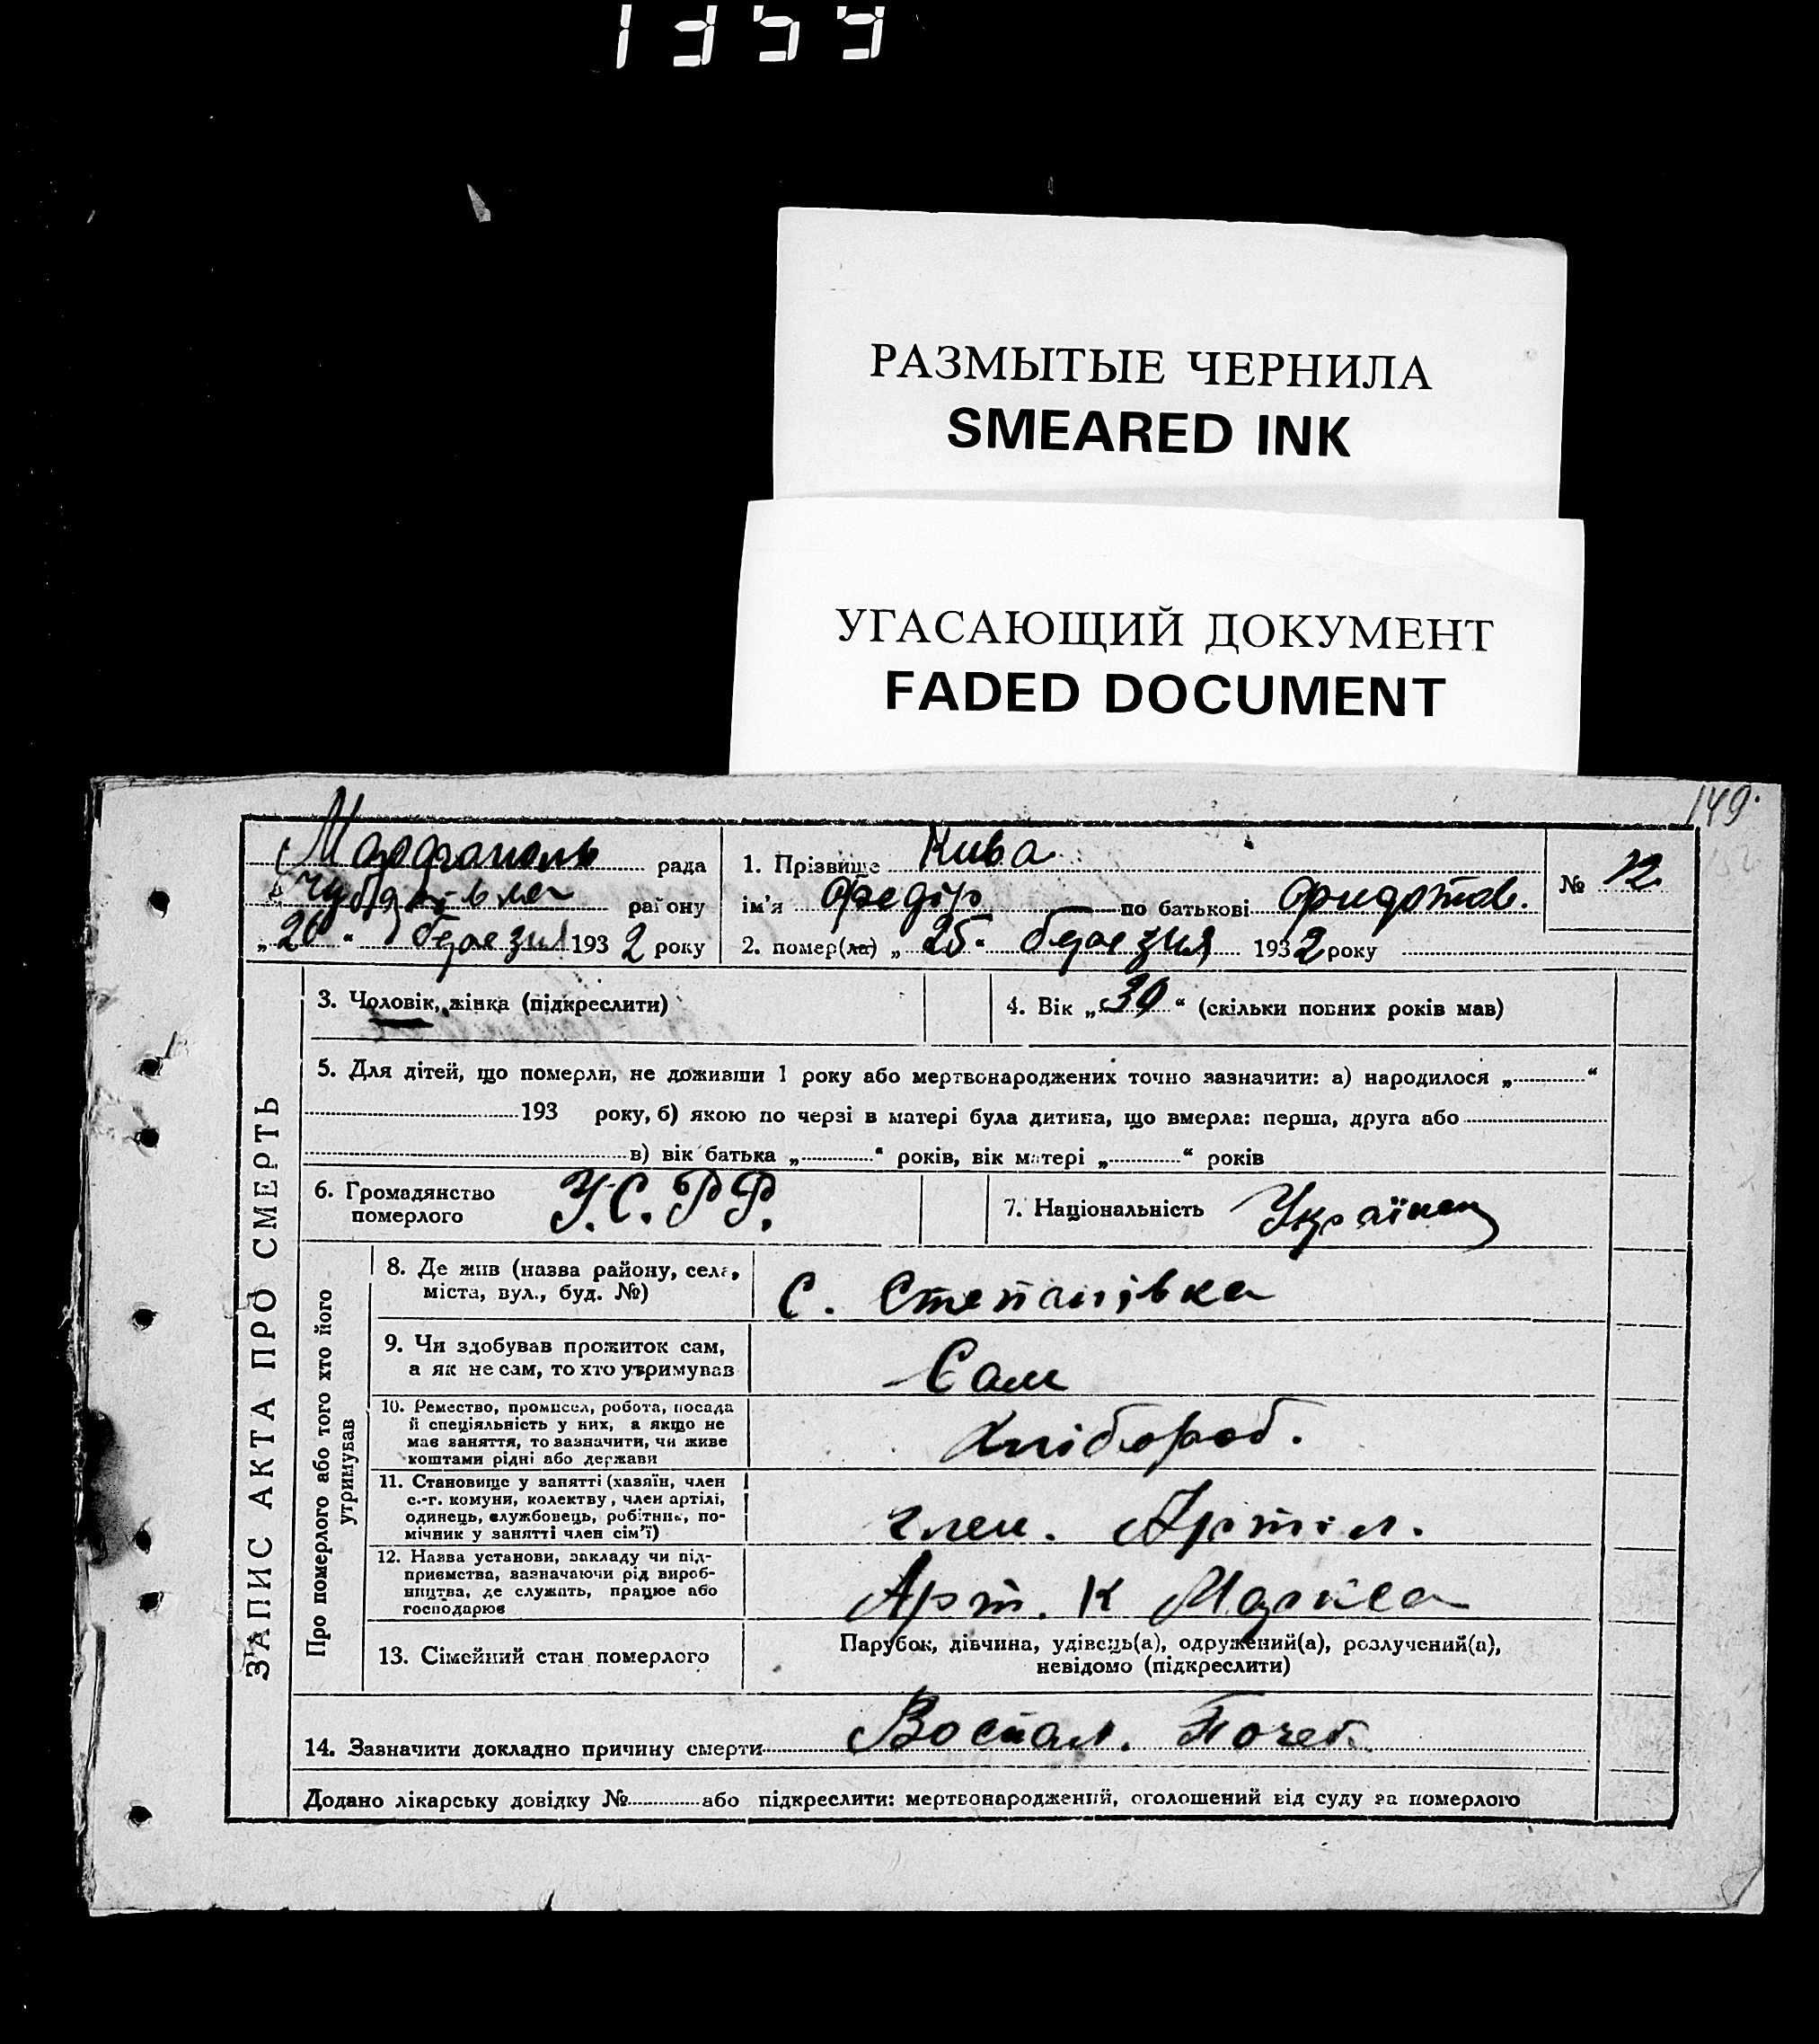 1359
РАЗМЫТЫЕ ЧЕРНИЛА
SMEARED INK
УГАСАЮЩИЙ ДОКУМЕНТ
FADED DOCUMENT
149.
рада
району
„26“ березня 1932 року
1. Прізвище Кива
ім’я Федір по батькові
2. помер(ла) „25“ березня 1932 року
№ 12
ЗАПИС АКТА ПРО СМЕРТЬ
3. Чоловік, жінка (підкреслити)
4. Вік „30“ (скільки повних років мав)
5. Для дітей, що померли, не доживши 1 року або мертвонароджених точно зазначити: а) народилося „ “
193 року, б) якою по черзі в матері була дитина, що вмерла: перша, друга або
в) вік батька „ “ років, вік матері „ “ років
6. Громадянство
померлого
У.С.РР.
7. Національність Українец
Про померлого або того хто його
утримував
8. Де жив (назва району, села,
міста, вул., буд. №)
С. Степанівка
9. Чи здобував прожиток сам,
а як не сам, то хто утримував
Сам
10. Ремество, промисел, робота, посада
й спеціяльність у них, а якщо не
має заняття, то зазначити, чи живе
коштами рідні або держави
Хлібороб.
11. Становище у занятті (хазяїн, член
с.-г. комуни, колектву, член артілі,
одинець, службовець, робітник, по-
мічник у занятті член сім’ї)
член. Артіл.
12. Назва установи, закладу чи під-
приємства, зазначаючи рід вироб-
ництва, де служить, працює або
господарює
Арт. К Маркса
13. Сімейний стан померлого
Парубок, дівчина, удівець(а), одружений(а), розлучений(а),
невідомо (підкреслити)
14. Зазначити докладно причину смерти Воспал. Почек
Додано лікарську довідку № або підкреслити: мертвонароджений, оголошений від суду за померлого